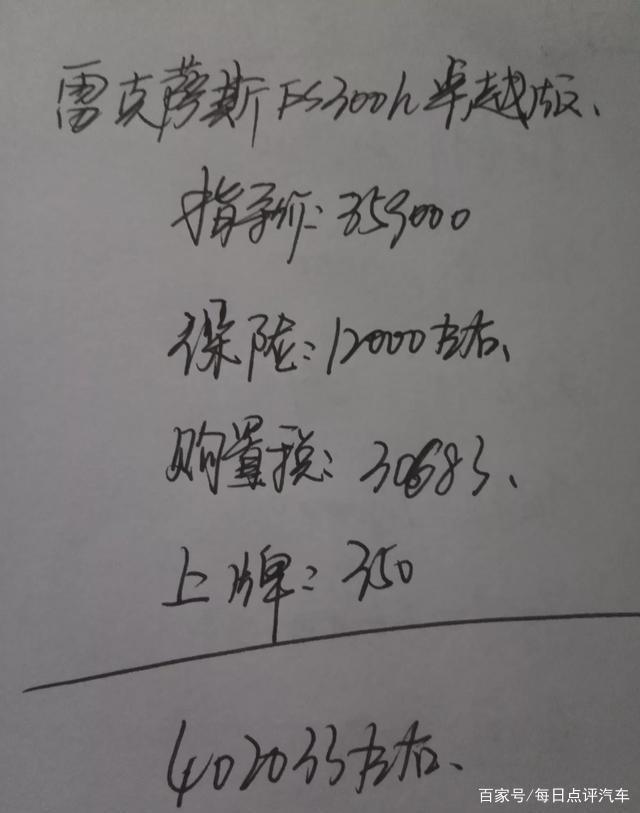 雷克萨斯ES300h卓越版、
指导价：359000
保险：12000左右、
购置税：30683、
上牌：350
402033左右、
百家号/每日点评汽车